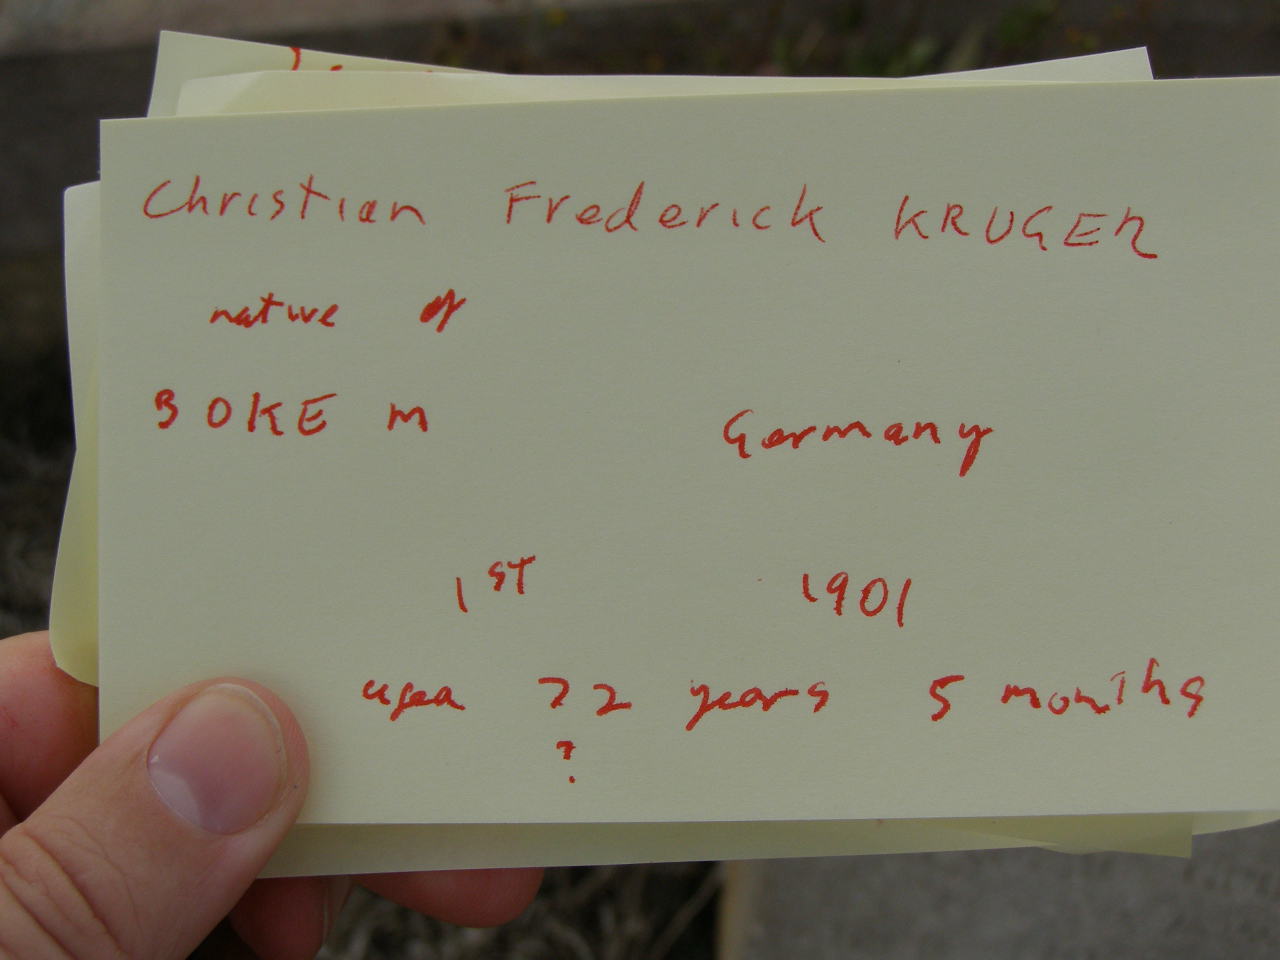 Christian Frederick KRUGER
native of
BOKE M Germany
1ST 1901
aged 72 years 5 months
?